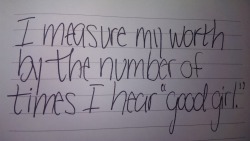 I measure my worth
by the number of
times I hear "good girl."